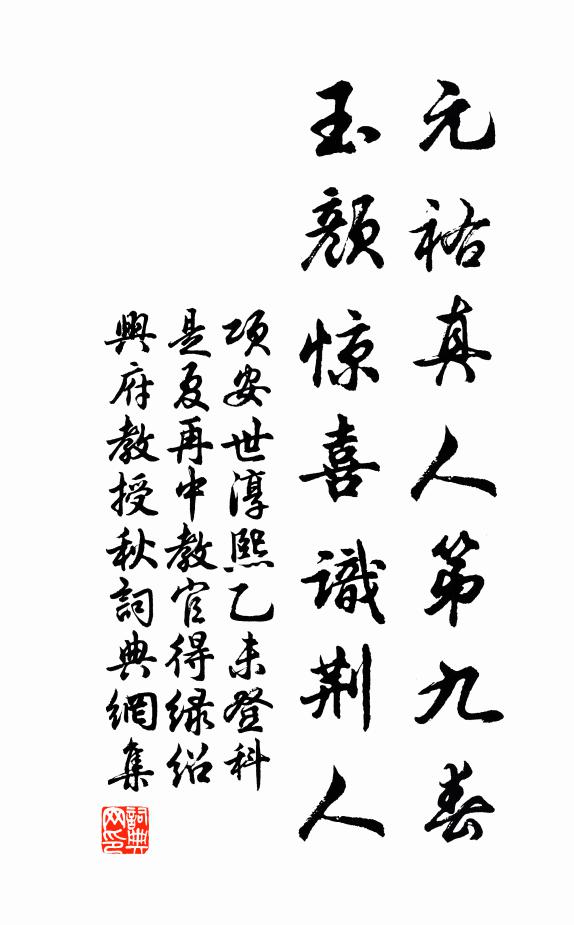 元祐真人第九春
玉颜惊喜識荆人
项安世淳熙乙未登科
是夏再中教官得绿绍
興府教授秋詞典網集
詞典网印